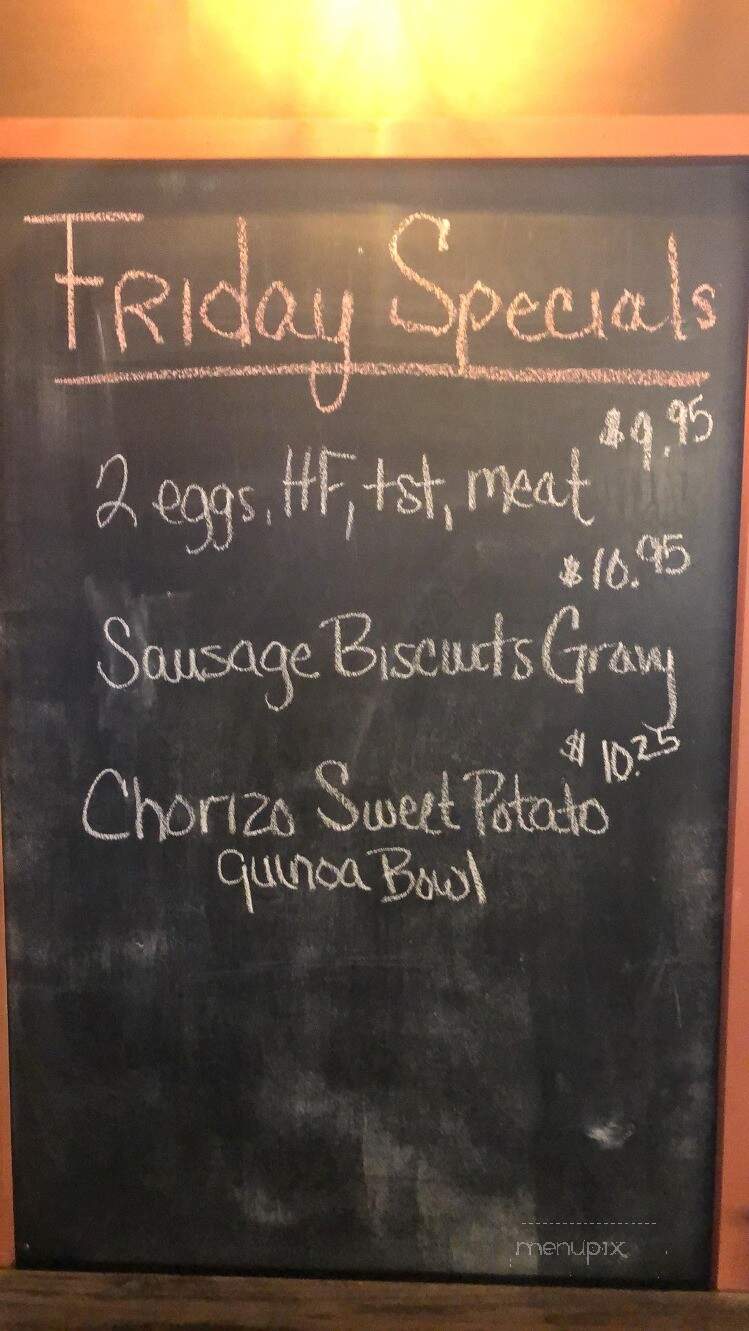 Friday Specials
$9.95
2 eggs, HF, tst, meat
$10.95
Sausage Biscuits Gravy
$10.25
Chorizo Sweet Potato
quinoa Bowl
menupix